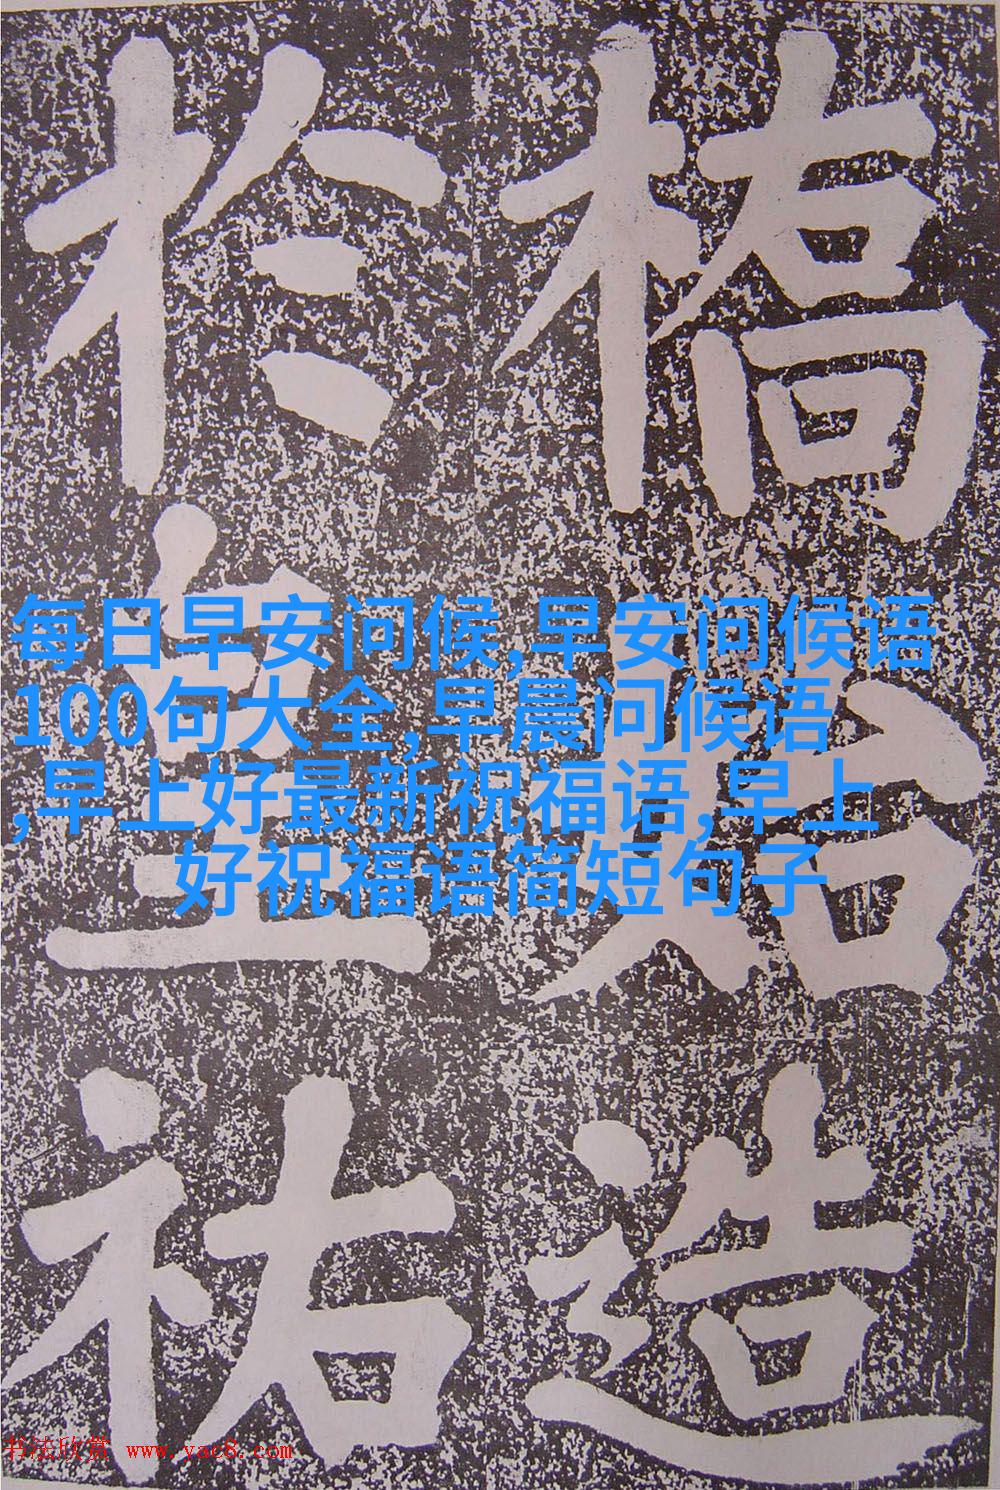 橋始造
於皇祐
每日早安问候,早安问候语
100句大全,早晨问候语
,早上好最新祝福语,早上
好祝福语简短句子
书法欣赏 www.yac8.com